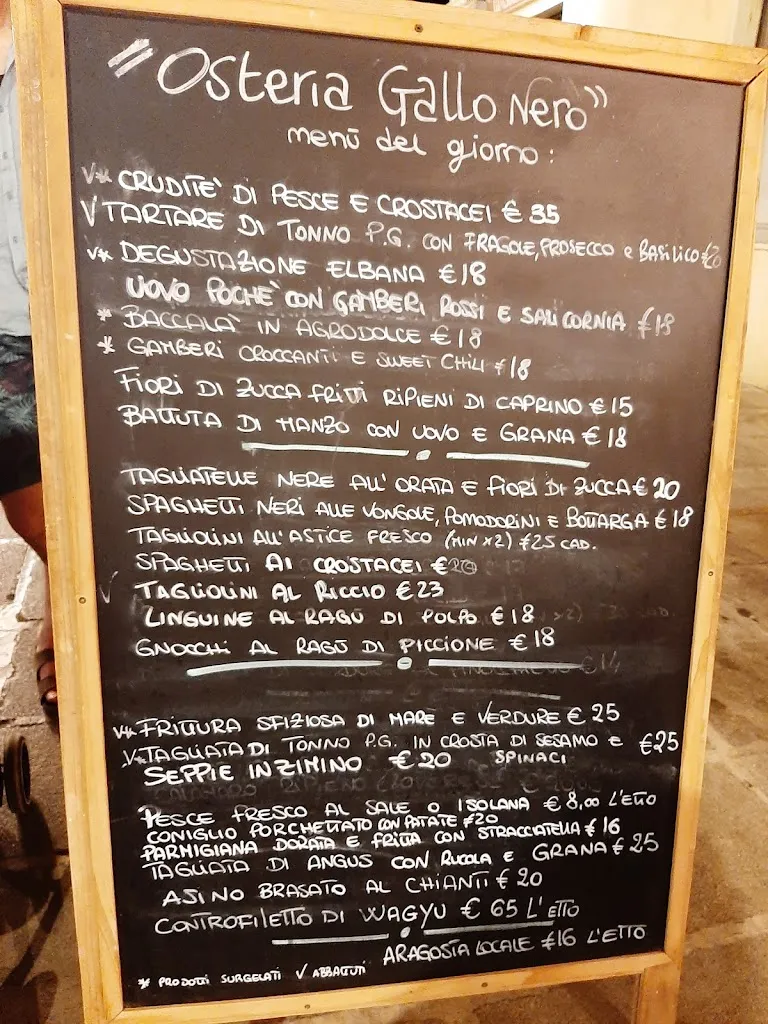 "Osteria Gallo Nero"
menù del giorno:
V* CRUDITE' DI PESCE E CROSTACEI € 35
V TARTARE DI TONNO P.G. CON FRAGOLE, PROSECCO e BASILICO €20
V* DEGUSTAZIONE ELBANA €18
UOVO POCHE' CON GAMBERI ROSSI E SALICORNIA €18
* BACCALA' IN AGRODOLCE €18
* GAMBERI CROCCANTI E SWEET CHILI €18
FIORI DI ZUCCA FRITTI RIPIENI DI CAPRINO €15
BATTUTA DI MANZO CON UOVO E GRANA €18
TAGLIATELLE NERE ALL' ORATA E FIORI DI ZUCCA €20
SPAGHETTI NERI ALLE VONGOLE, POMODORINI E BOTTARGA €18
TAGLIOLINI ALL'ASTICE FRESCO (MIN X2) €25 CAD.
SPAGHETTI AI CROSTACEI €20
V TAGLIOLINI AL RICCIO €23
LINGUINE AL RAGÙ DI POLPO €18
GNOCCHI AL RAGÙ DI PICCIONE €18
V* FRITTURA SFIZIOSA DI MARE E VERDURE €25
V* TAGLIATA DI TONNO P.G. IN CROSTA DI SESAMO E SPINACI €25
SEPPIE INZIMINO €20
PESCE FRESCO AL SALE O ISOLANA €8,00 L'ETTO
CONIGLIO PORCHETTATO CON PATATE €20
PARMIGIANA DORATA E FRITTA CON STRACCIATELLA €16
TAGLIATA DI ANGUS CON RUCOLA E GRANA €25
ASINO BRASATO AL CHIANTI €20
CONTROFILETTO DI WAGYU € 65 L'ETTO
ARAGOSTA LOCALE €16 L'ETTO
* PRODOTTI SURGELATI V ABBATTUTI